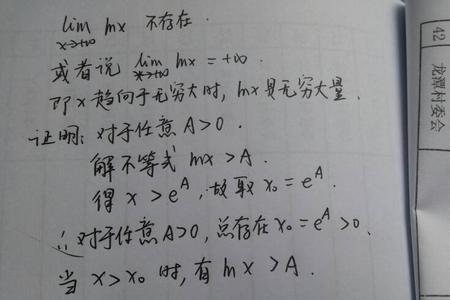 lim ln x 不存在.
x→+∞
或者说 lim ln x = +∞.
x→+∞
即 x 趋向于无穷大时, ln x 是无穷大量.
证明: 对于任意 A>0.
解不等式 ln x > A.
得 x > e^A, 故取 x₀ = e^A.
∴ 对于任意 A>0, 总存在 x₀ = e^A >0.
当 x > x₀ 时, 有 ln x > A.
42
龙潭村委会